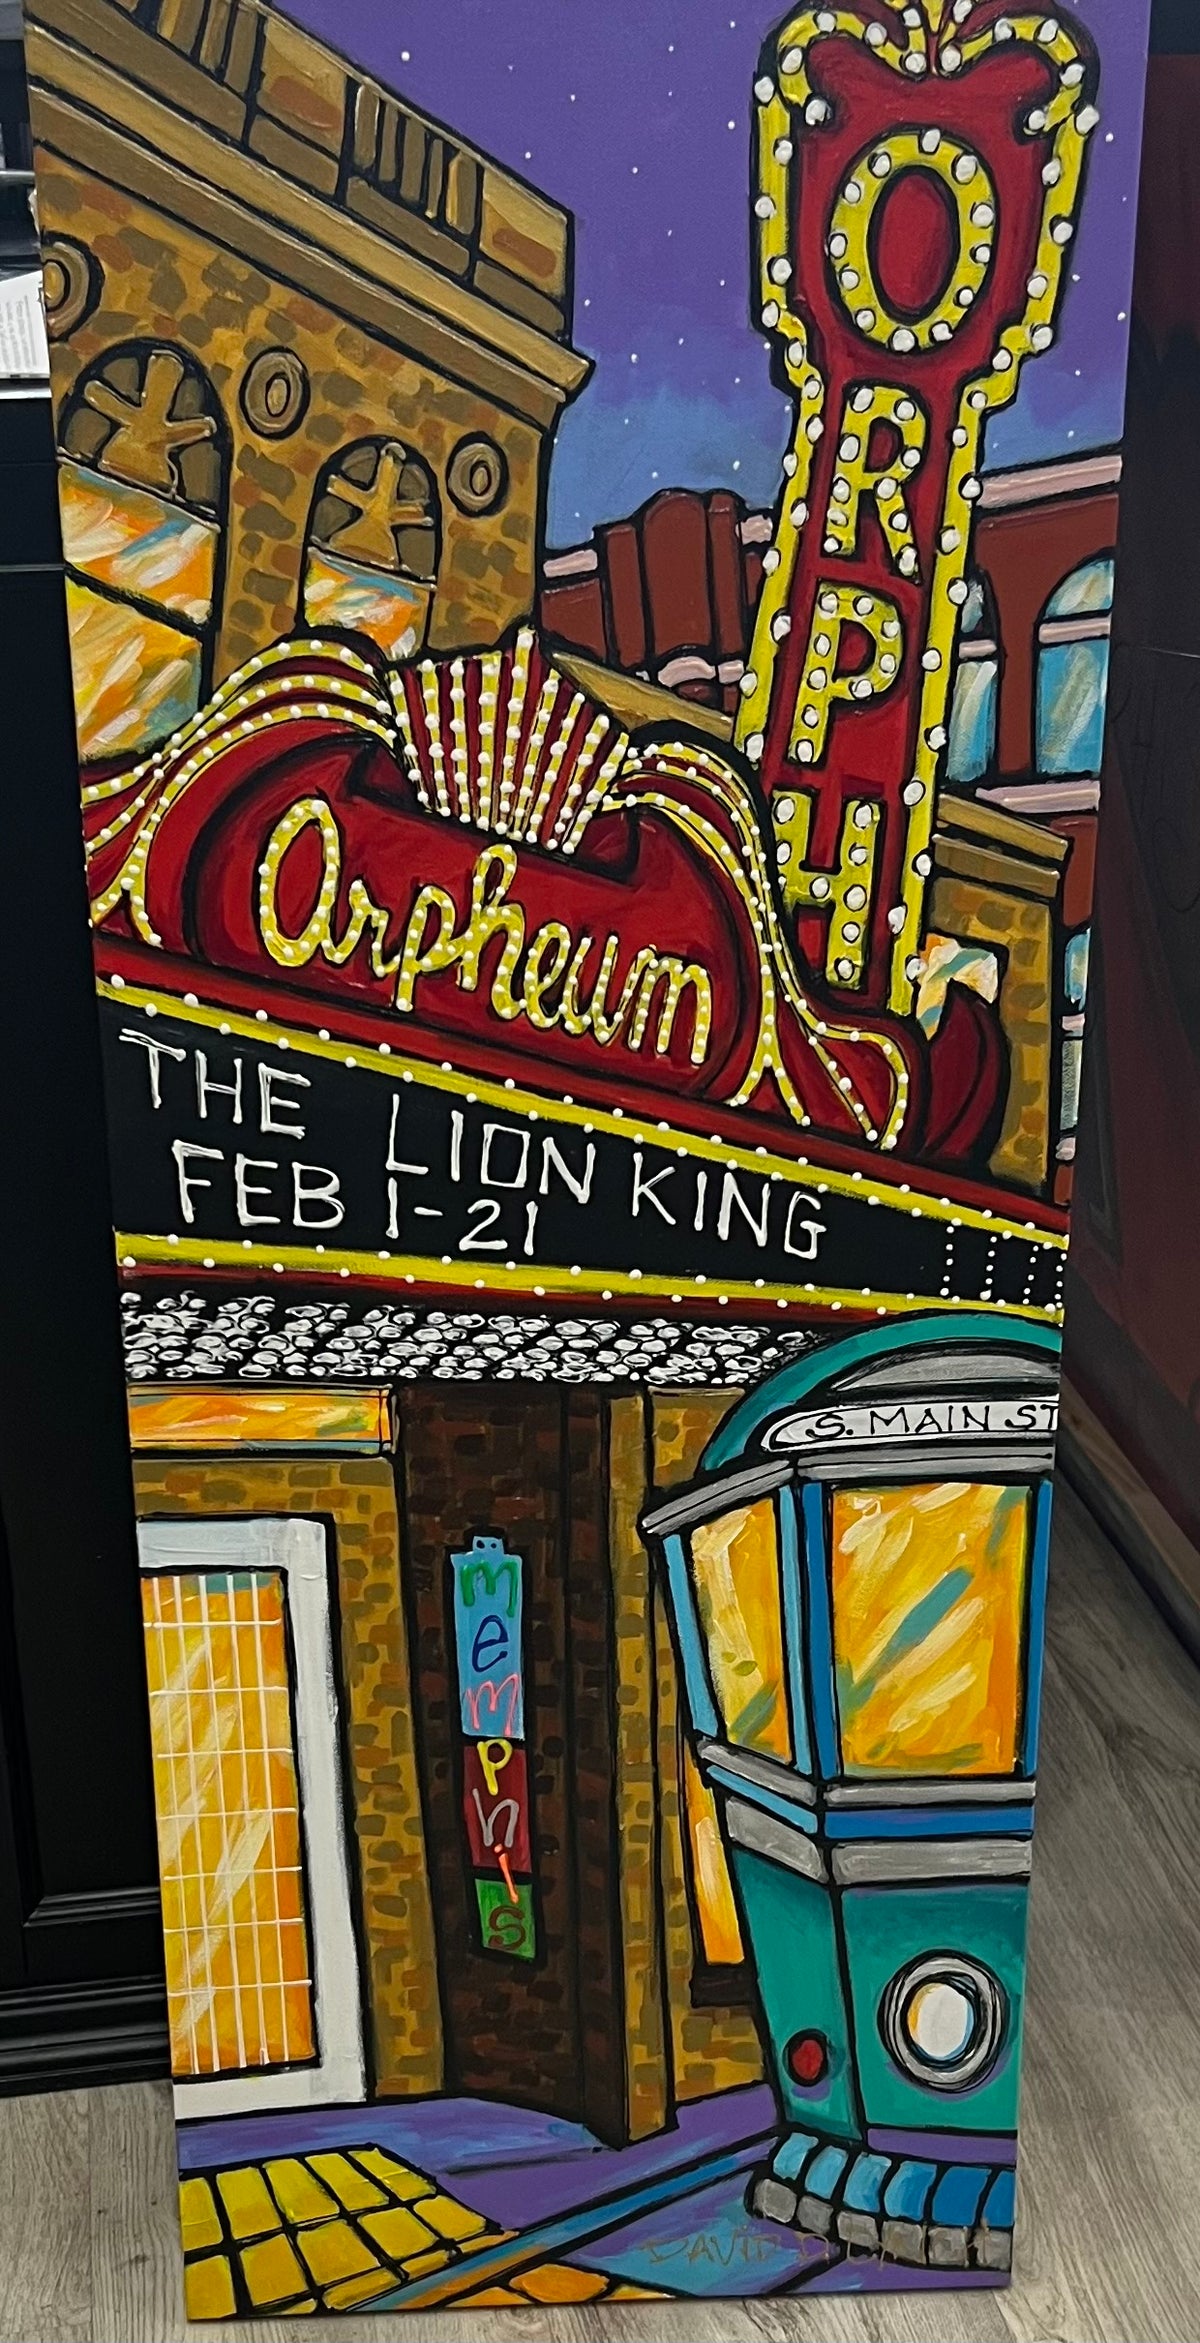 ORPH
Orpheum
THE LION KING
FEB 1-21
S. MAIN ST
memphis
DAVID